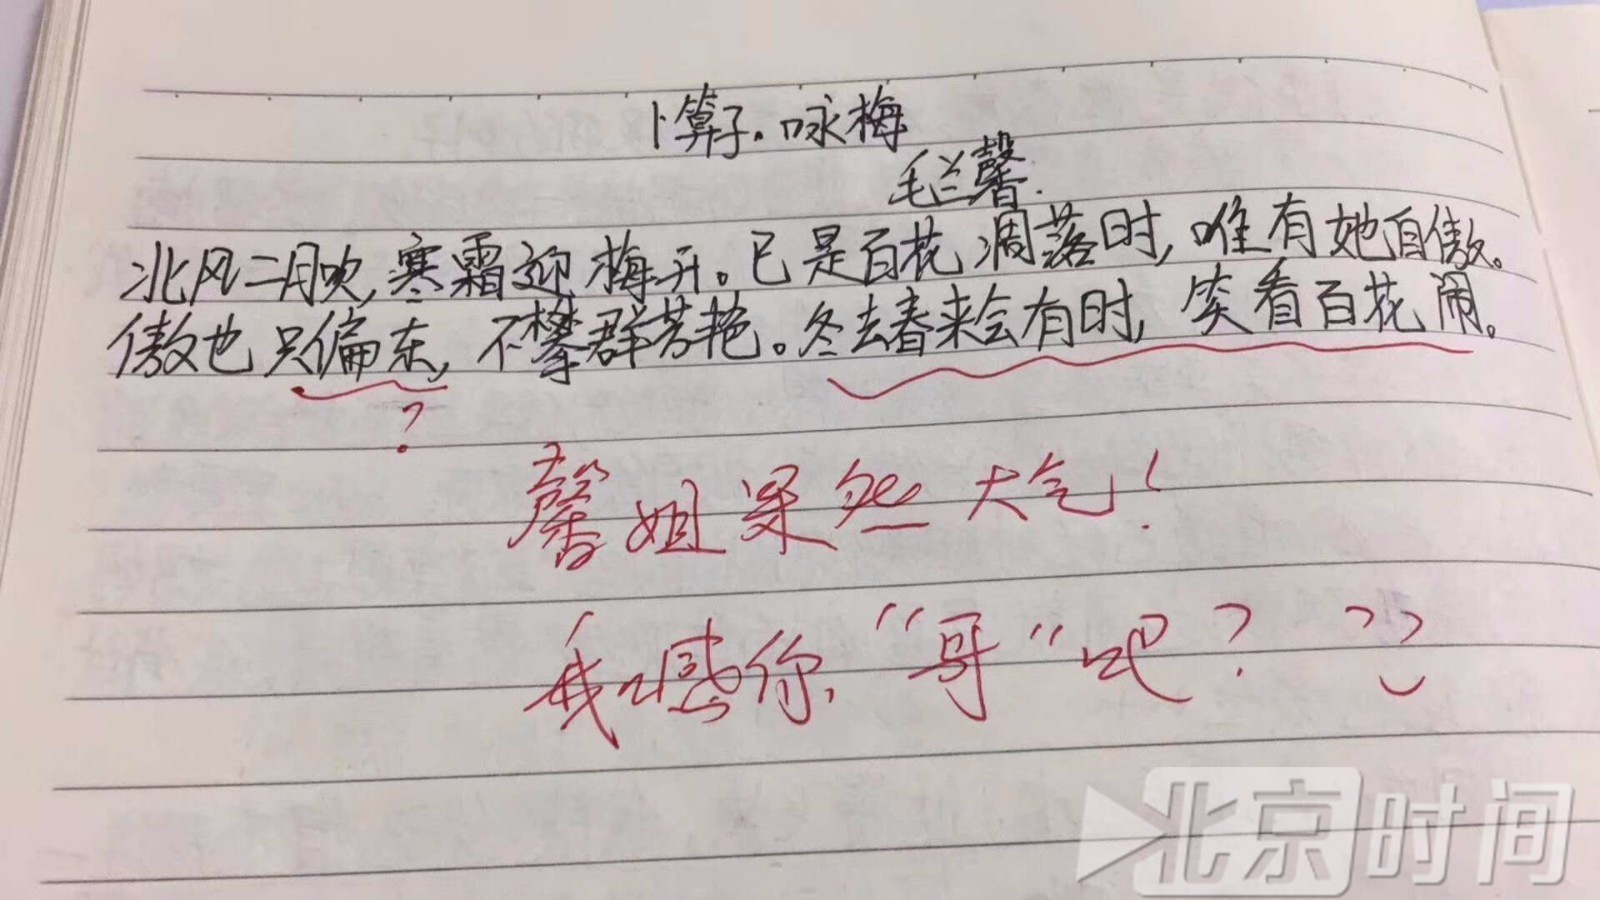 卜算子.咏梅
毛兰馨.
北风二月吹,寒霜迎梅开。已是百花凋落时,唯有她自傲。
傲也只偏东,不攀群芳艳。冬去春来会有时,笑看百花闹。
?
馨姐果然大气!
我喊你“哥”吧?
北京时间